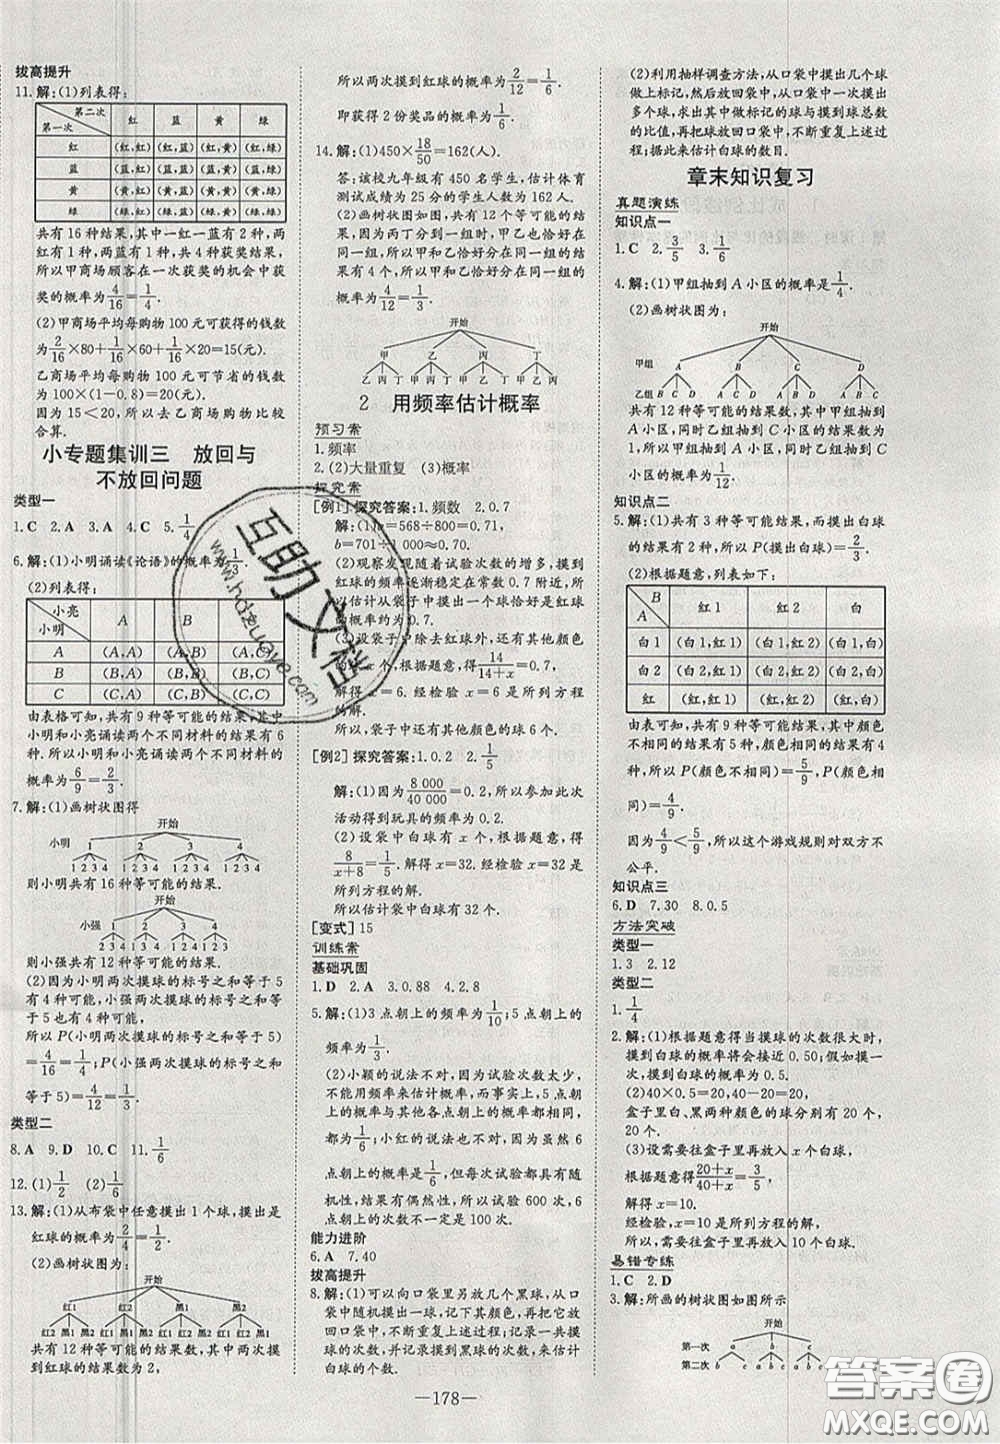 拔高提升
11.解:(1)列表得:
第二次 第一次 红 蓝 黄 绿
红 (红,红) (红,蓝) (红,黄) (红,绿)
蓝 (蓝,红) (蓝,蓝) (蓝,黄) (蓝,绿)
黄 (黄,红) (黄,蓝) (黄,黄) (黄,绿)
绿 (绿,红) (绿,蓝) (绿,黄) (绿,绿)
共有16种结果,其中一红一蓝有2种,两
次都是红有1种,两次都是蓝有1种,共4种获
所以甲商场顾客在一次获奖的机会中获
奖的概率为4/16=1/4.
(2)甲商场平均每购物100元可获得的钱数
为2/16×80+1/16×60+1/16×20=15(元).
乙商场平均每购物100元可节省的钱数
为100×(1-0.8)=20(元).
因为15<20,所以去乙商场购物比较
合算.
小专题集训三 放回与
不放回问题
类型一
1.C 2.A 3.A 4.C 5.1/4
6.解:(1)小明诵读《论语》的概率为1/3.
(2)列表得:
小亮 小明 A B C
A (A,A) (A,B) (A,C)
B (B,A) (B,B) (B,C)
C (C,A) (C,B) (C,C)
由表格可知,共有9种等可能的结果,其中
小明和小亮诵读两个不同材料的结果有6
种.所以小明和小亮诵读两个不同材料的
概率为6/9=2/3.
7.解:(1)画树状图得
开始
小明 1 2 3 4
1 2 3 4 1 2 3 4 1 2 3 4 1 2 3 4
则小明共有16种等可能的结果.
开始
小强 1 2 3 4
2 3 4 1 3 4 1 2 4 1 2 3
小强共有12种等可能的结果.
(2)因为小明两次摸球的标号之和等于5
有4种可能,小强两次摸球的标号之和等
于5也有4种可能,
所以P(小明两次摸球的标号之和等于5)
=4/16=1/4;P(小强两次摸球的标号之和
等于5)=4/12=1/3.
类型二
8.A 9.D 10.C 11.1/6
12.(1)1/2 (2)1/6
13.解:(1)从布袋中任意摸出1个球,摸出是
红球的概率为2/4=1/2.
(2)画树状图为:
开始
红1 红2 黑1 黑2
红2 黑1 黑2 红1 黑1 黑2 红1 红2 黑2 红1 红2 黑1
共有12种等可能的结果数,其中两次摸
到红球的结果数为2,
所以两次摸到红球的概率为2/12=1/6.
即获得2份奖品的概率为1/6.
14.解:(1)450×18/50=162(人).
答:该校九年级有450名学生,估计体育
测试成绩为25分的学生人数为162人.
(2)画树状图如图,共有12种等可能的结
果,甲和乙恰好分在同一组的结果有4种,
所以甲和乙恰好分在同一组的概率为
4/12=1/3.
开始
甲 乙 丙 丁
乙 丙 丁 甲 丙 丁 甲 乙 丁 甲 乙 丙
2 用频率估计概率
预习案
1.频率
2.(2)大量重复 (3)概率
探究案
[例1]探究答案:1.频数 2.0.7
解:(1)a=568÷800=0.71,
b=701÷1000≈0.70;
(2)观察发现随着试验次数的增多,摸到
红球的频率逐渐稳定在常数0.7附近,所
以估计从袋子中摸出一个球恰好是红球
的概率约为0.7.
(3)设袋子中除去红球外,还有其他颜色
的球x个,根据题意,得14/(14+x)=0.7,
解得x=6.经检验x=6是所列方程
的解.
所以,袋子中还有其他颜色的球6个.
[例2]探究答案:1.0.2 2.1/5
解:(1)因为8 000/40 000=0.2,所以参加此次
活动得到玩具的频率为0.2.
(2)设袋中白球有x个,根据题意,得
8/(x+8)=1/5.解得x=32.经检验x=32是
所列方程的解.
所以估计袋中白球有32个.
[变式]15
训练案
基础巩固
1.D 2.A 3.0.88 4.2.8
5.解:(1)3点朝上的频率为1/10;5点朝上的
频率为1/3.
(2)小颖的说法不对.因为试验次数太少,
不能用频率来估计概率,而事实上,5点朝
上的概率与其他各点朝上的概率一样,
都为1/6;小红的说法也不对,虽然是
点朝上的概率是1/6,但每次试验都有随
机性,结果有偶然性,所以试验600次,6
点朝上的次数不一定是100次.
能力进阶
6.A 7.40
拔高提升
8.解:(1)可以向口袋里另放几个黑球,从口
袋中随机摸出一球,记下其颜色,再把它
放回口袋中,不断重复上述过程,一共摸
并记录摸到黑球的次数,由此来估计
白球的个数.
(2)利用抽样调查方法,从口袋中摸出几个球
做上标记,放回袋中,再从口袋中摸出几个
球,求出其中做标记的球与摸到球总数
的比值,再把球放回口袋中,不断重复上
述过程,由此来估计白球的数目.
章末知识复习
真题演练
知识点一
1.C 2.3/5 3.1/6
4.解:(1)甲组抽到A小区的概率是1/4.
(2)画树状图为:
开始
甲组 A B C D
乙组 B C D A C D A B D A B C
共有12种等可能的结果数,其中甲组抽到
A小区,同时乙组抽到C小区的结果数
为1,所以甲组抽到A小区,同时乙组抽到
C小区的概率为1/12.
知识点二
5.解:(1)共有3种等可能结果,而摸出白球
的结果有2种,所以P(摸出白球)=2/3.
(2)根据题意,列表如下:
B A 红1 红2 白
白1 (白1,红1) (白1,红2) (白1,白)
白2 (白2,红1) (白2,红2) (白2,白)
红 (红,红1) (红,红2) (红,白)
由表可知,共有9种等可能结果,其中颜色
不相同的结果有5种,颜色相同的结果有
4种,所以P(颜色不相同)=5/9,P(颜色相
同)=4/9.
因为4/9<5/9,所以这个游戏规则对双方不
公平.
知识点三
6.D 7.30 8.0.5
方法突破
类型一
1.3 2.12
类型二
1.1/4
2.解:(1)根据题意得当摸球的次数很大时,
摸到白球的频率将会接近0.50;假如摸一次,
摸到白球的概率为0.5.
(2)40×0.5=20,40-20=20.
盒子里白、黑两种颜色的球分别有20个、20
个.
(3)设需要往盒子里再放入x个白球.
根据题意得(20+x)/(40+x)=3/5
解得x=10.
经检验,x=10是所列方程的解.
故需要往盒子里再放入10个白球.
易错专练
1.C 2.D
3.解:所画的树状图如图所示
开始
第一次 a b c
第二次
—178—
互助文档
www.hdzuoye.com
答案圈
MXQE.COM